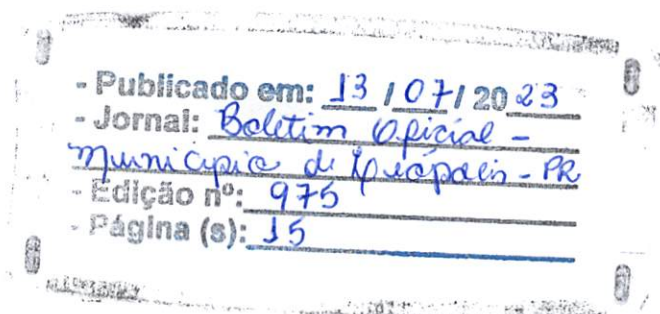 - Publicado em: 13 / 07 / 20 23
- Jornal: Boletim Oficial -
Município de - PR
- Edição nº: 975
- Página (s): 15